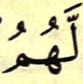 لَّهُمُ